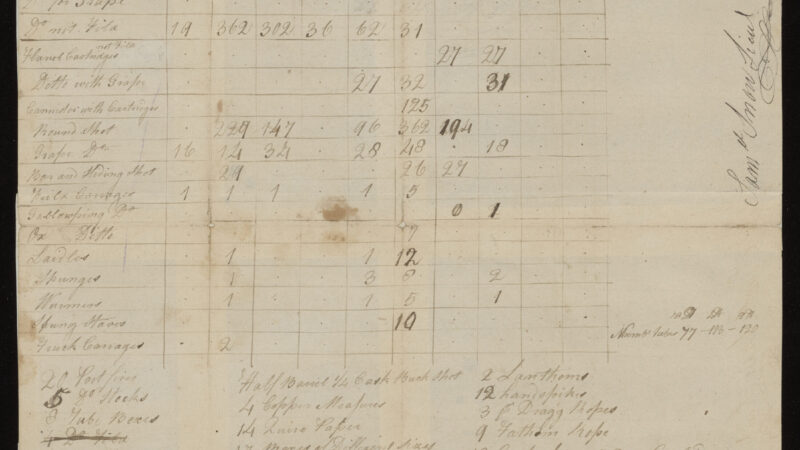 for Grape
Do not Fild 19 362 302 36 62 31
Flanel Cartridges not Fild 27 27
Ditto with Grape 27 32 31
Cannister with Cartridges 125
Round Shot 229 147 96 362 194
Grape Do 16 14 34 28 48 18
Bar and Sliding Shot 21 26 27
Field Carriages 1 1 1 1 5
Gallowping Do 0 1
Ox Ditto 7
Ladles 1 1 12
Spunges 1 3 8 2
Wormers 1 1 5 1
Spung Staves 10
Truck Carriages 2
Number taken 77 - 113 - 130
20 Portfires
5 Do Stocks
3 Tube Boxes
4 Do Fild
Half Barrel 1/4 Cask Buck Shot
4 Copper Measures
14 Quire Paper
of Different Sizes
2 Lanthorns
12 handspikes
3 pr Dragg Ropes
9 Fathom Rope